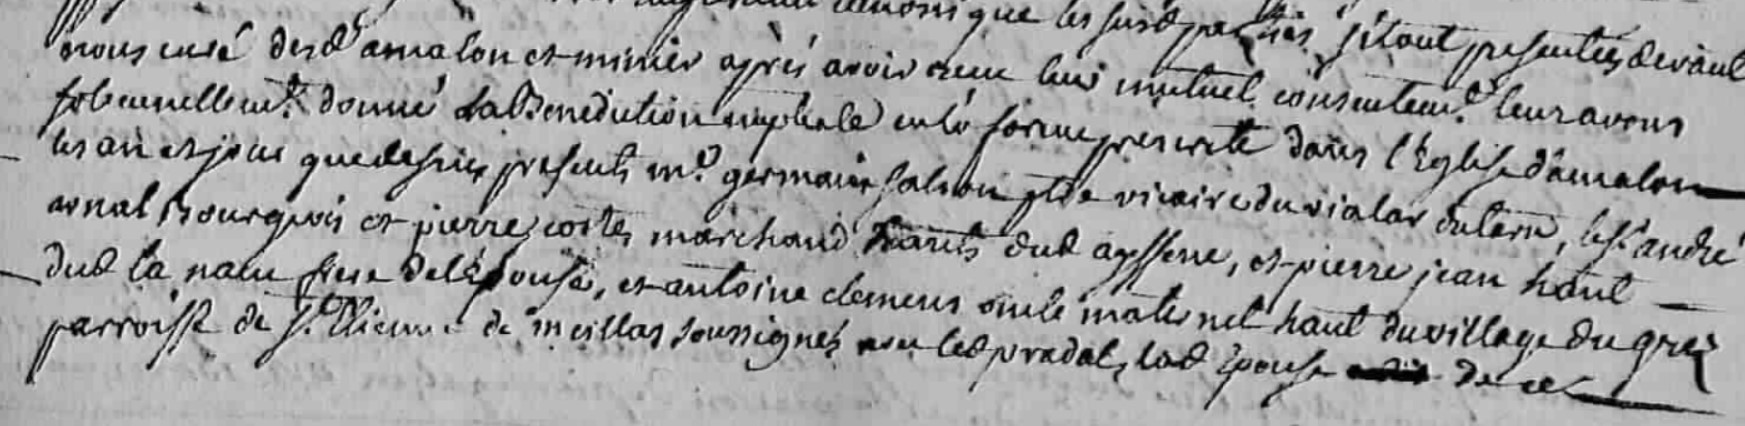 que les susd parties s'etant presentées devant
nous curé desd amalou et minier après avoir receu leur mutuel consentemt leur avons
solemnellemt donné la Benediction nuptiale en la forme prescrite dans l'Eglise d'amalou
les an et jour que dessus presents mr germain salson ptre vicaire du viala du tarn, le sr andré
arnal Bourgeois et pierre costes marchand hants dud ayssene, et pierre jean hant
dud la frere de l'Epouse, et antoine clemens oncle maternel hant du village du grez
parroisse de St Etienne de meillas soussignés avec led pradal, lad Epouse de ce